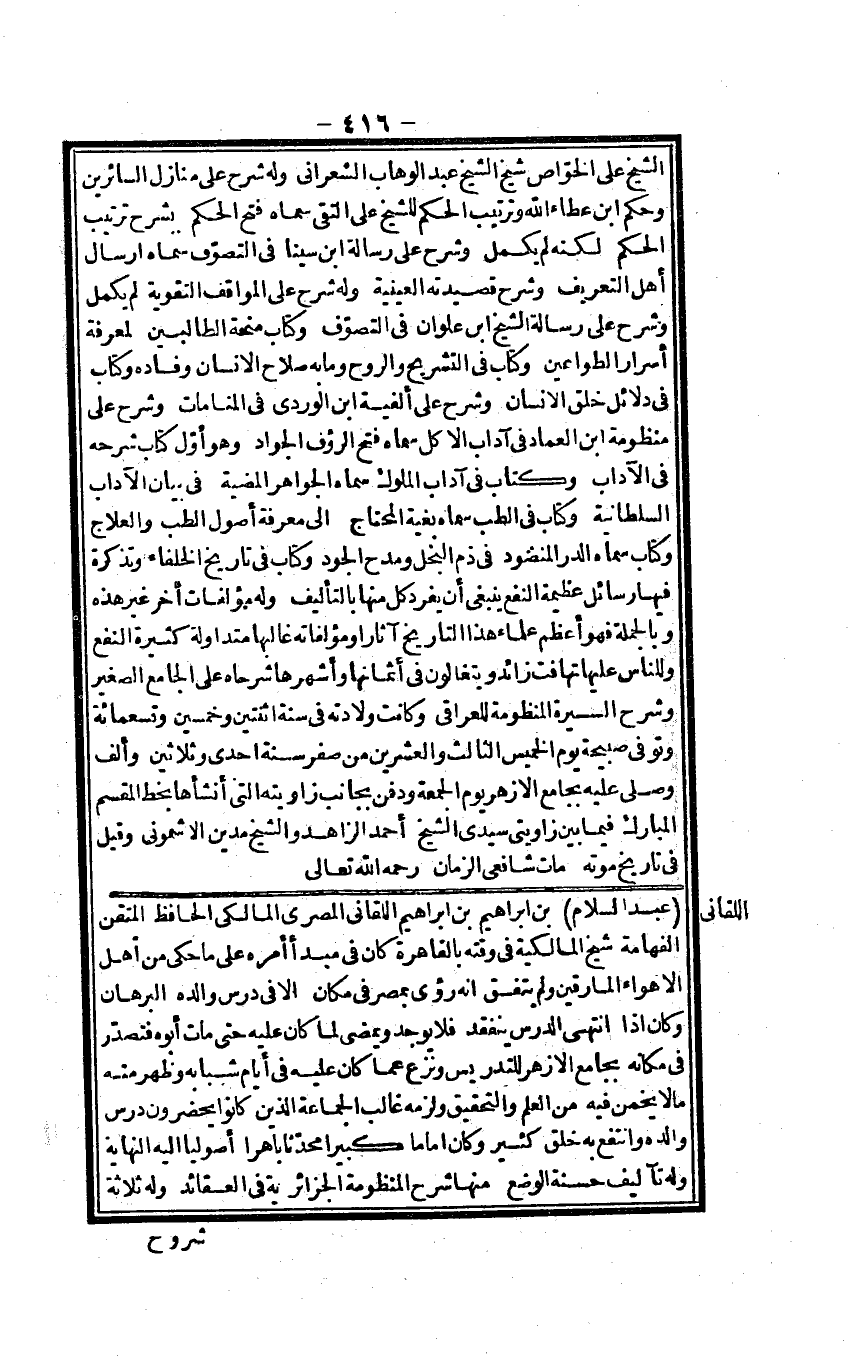 - ٤١٦ -
الشيخ على الخوّاص شيخ الشيخ عبد الوهاب الشعرانى وله شرح على منازل السائرين
وحكم ابن عطاء الله وترتيب الحكم للشيخ على التقى سماه فتح الحكم بشرح ترتيب
الحكم لكنه لم يكمل وشرح على رسالة ابن سينا فى التصوّف سماه ارسال
أهل التعريف وشرح قصيدته العينية وله شرح على المواقف التقوية لم يكمل
وشرح على رسالة الشيخ ابن علوان فى التصوّف وكتاب منحة الطالبين لمعرفة
أسرار الطواعين وكتاب فى التشريح والروح وما به صلاح الانسان وفساده وكتاب
فى دلائل خلق الانسان وشرح على ألفية ابن الوردى فى المنامات وشرح على
منظومة ابن العماد فى آداب الاكل سماه فتح الرؤف الجواد وهو أوّل كتاب شرحه
فى الآداب وكتاب فى آداب الملوك سماه الجواهر المضية فى بيان الآداب
السلطانية وكتاب فى الطب سماه بغية المحتاج الى معرفة أصول الطب والعلاج
وكتاب سماه الدر المنضود فى ذم البخل ومدح الجود وكتاب فى تاريخ الخلفاء وتذكرة
فيها رسائل عظيمة النفع ينبغى أن يفرد كل منها بالتأليف وله مؤلفات أخر غير هذه
وبالجملة فهو أعظم علماء هذا التاريخ آثارا ومؤلفاته غالبها متداولة كثيرة النفع
وللناس عليها تهافت زائد ويتغالون فى أثمانها وأشهرها شرحاه على الجامع الصغير
وشرح السيرة المنظومة للعراقى وكانت ولادته فى سنة اثنتين وخمسين وتسعمائة
وتوفى صبيحة يوم الخميس الثالث والعشرين من صفر سنة احدى وثلاثين وألف
وصلى عليه بجامع الازهر يوم الجمعة ودفن بجانب زاويته التى أنشأها بخط المقسم
المبارك فيما بين زاويتى سيدى الشيخ أحمد الزاهد والشيخ مدين الاشمونى وقيل
فى تاريخ موته مات شافعى الزمان رحمه الله تعالى
اللقانى
(عبد السلام) بن ابراهيم بن ابراهيم اللقانى المصرى المالكى الحافظ المتقن
الفهامة شيخ المالكية فى وقته بالقاهرة كان فى مبدأ أمره على ما حكى من أهل
الاهواء المارقين ولم يتفق انه رؤى بمصر فى مكان الا فى درس والده البرهان
وكان اذا انتهى الدرس يتفقد فلا يوجد ويمضى لما كان عليه حتى مات أبوه فتصدّر
فى مكانه بجامع الازهر للتدريس ونزع عما كان عليه فى أيام شبابه وظهر منه
مالا يخمن فيه من العلم والتحقيق ولزمه غالب الجماعة الذين كانوا يحضرون درس
والده وانتفع به خلق كثير وكان اماما كبيرا محدثا باهرا أصوليا اليه النهاية
وله تآليف حسنة الوضع منها شرح المنظومة الجزائرية فى العقائد وله ثلاثة
شروح